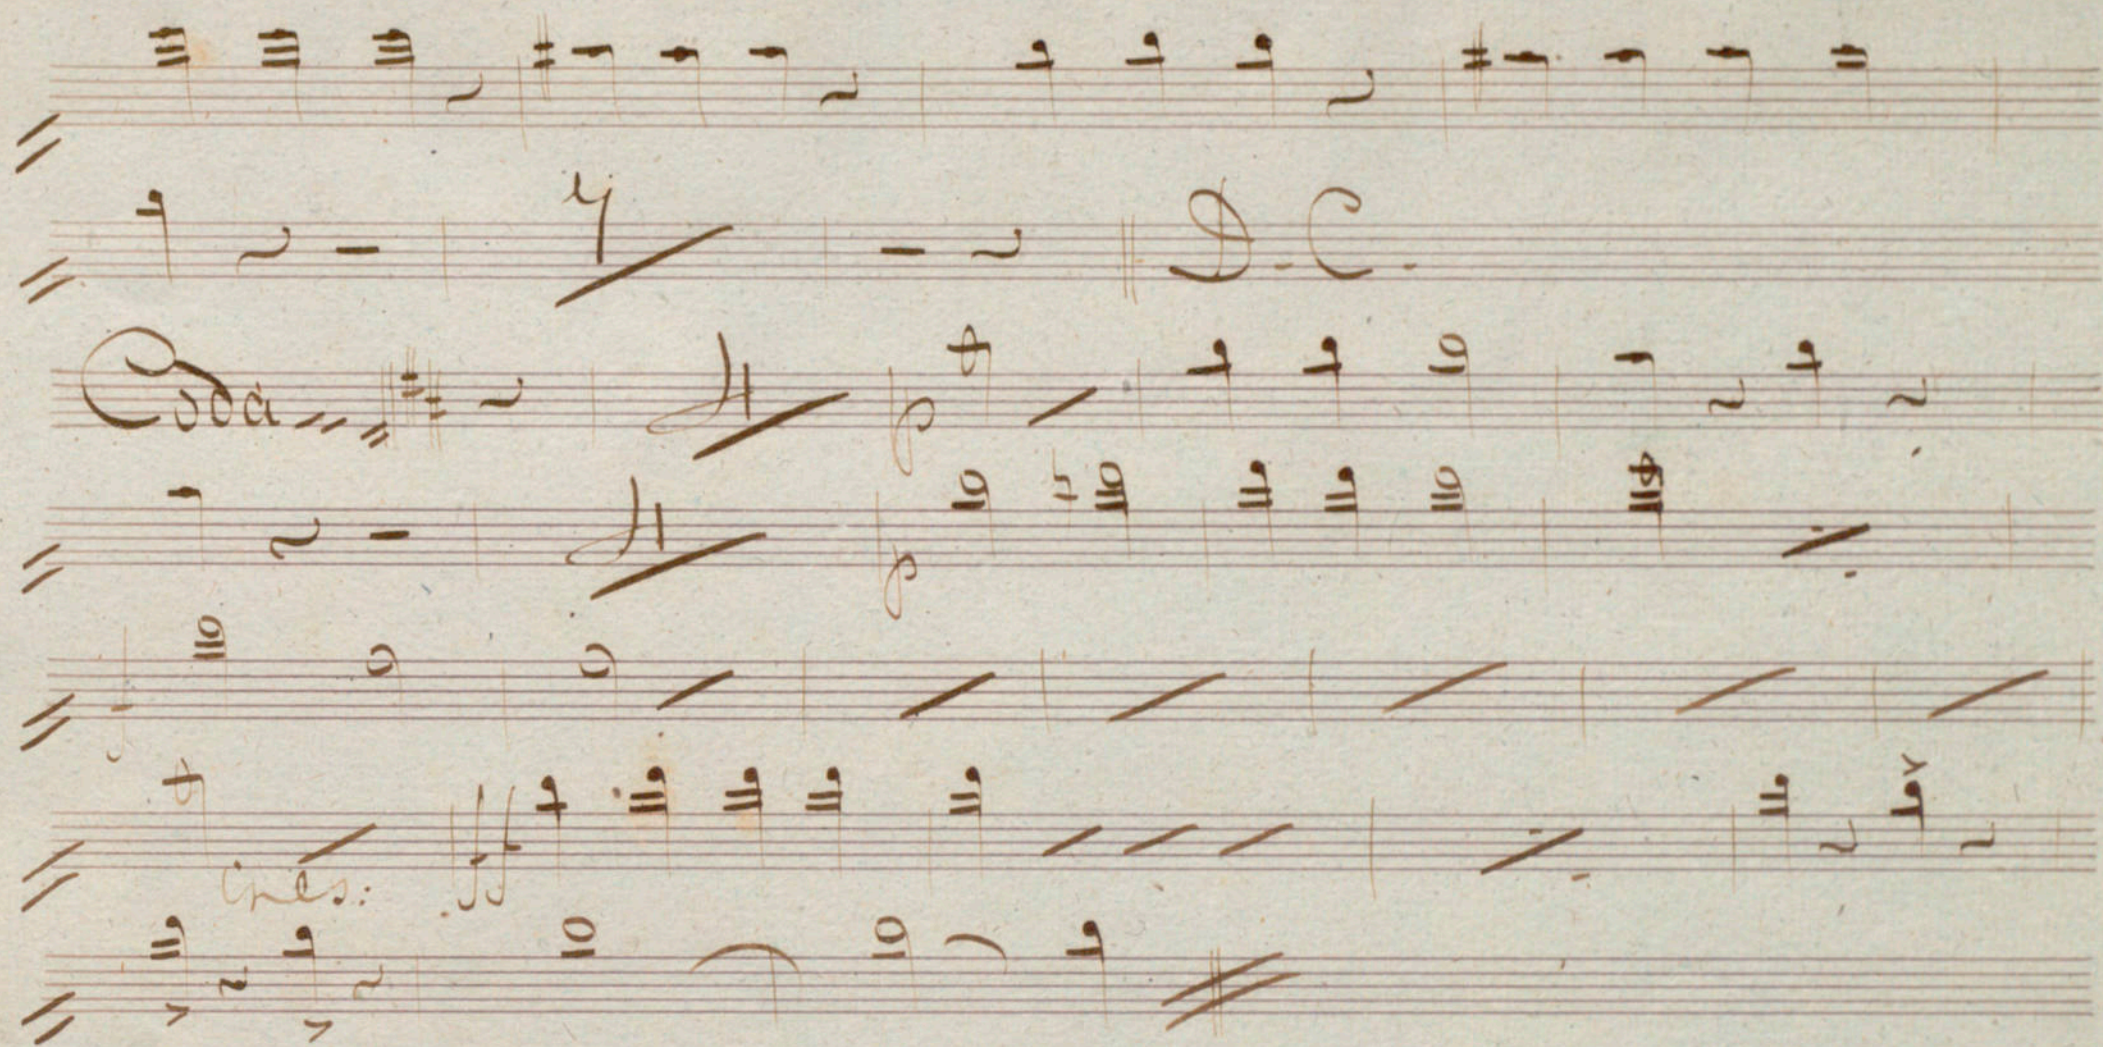 4
D. C.
Coda
4
p
4
p
f
Cres: ff